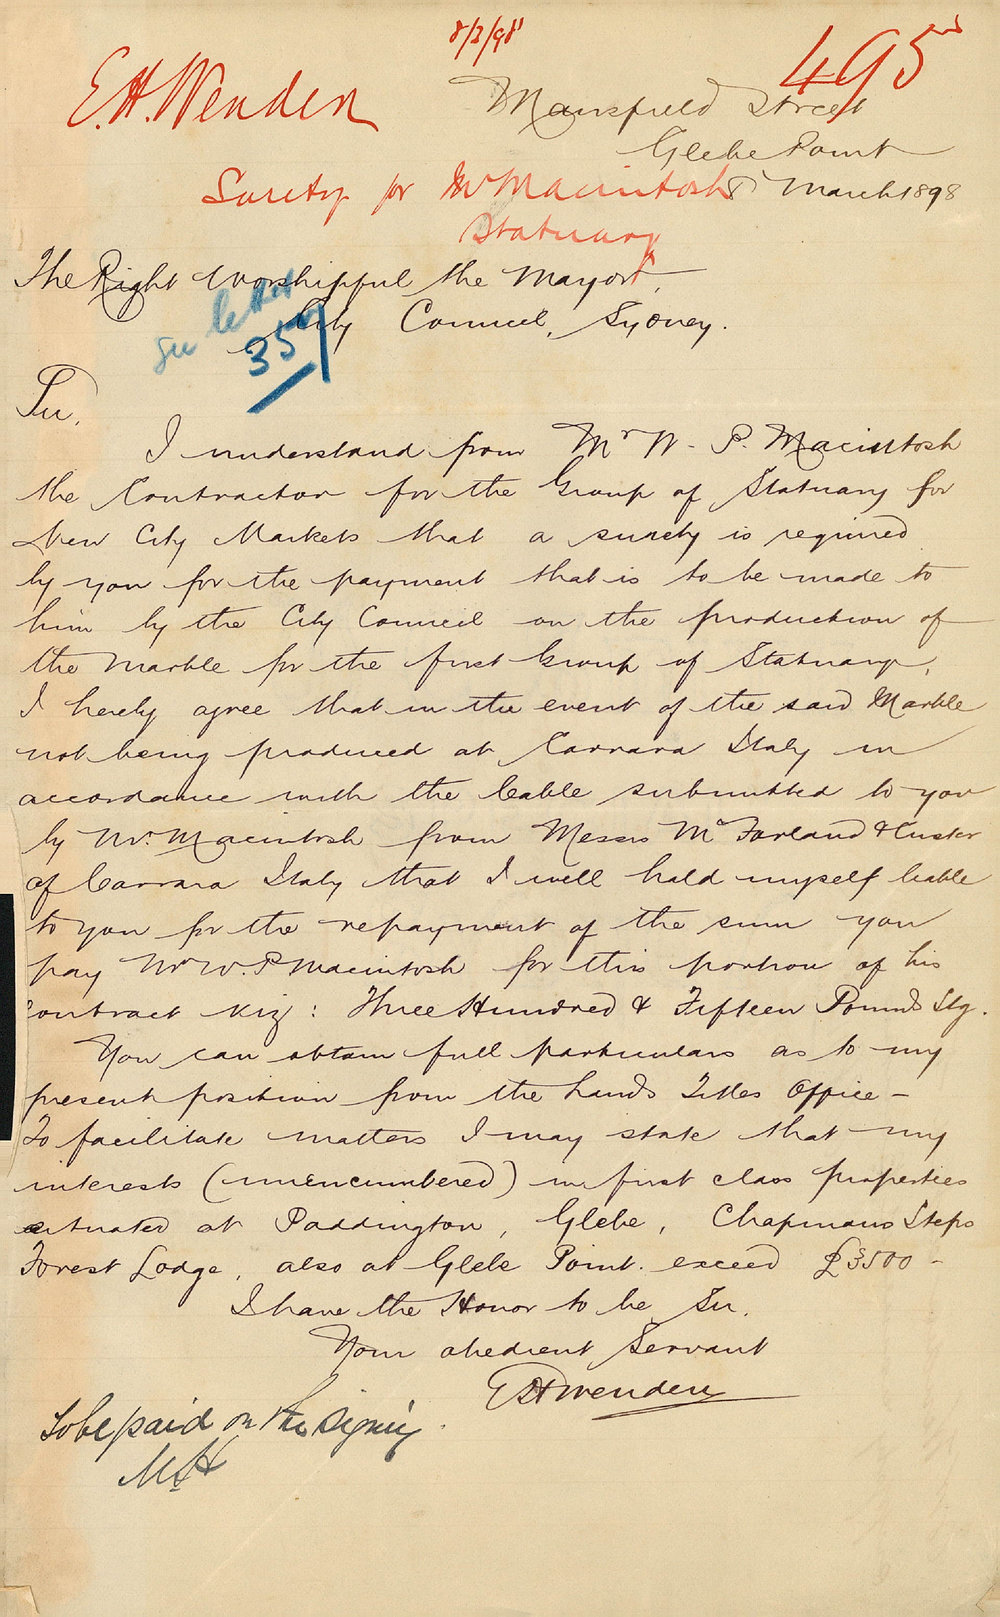 8/3/98
495
E.H. Wenden
Mansfield Street
Glebe Point
Surety for Mr Macintosh
8 March 1898
Statuary
The Right Worshipful the Mayor,
City Council, Sydney.
see letter
357
Sir,
I understand from Mr W. P. Macintosh
the Contractor for the Group of Statuary for
New City Markets that a surety is required
by you for the payment that is to be made to
him by the City Council on the production of
the Marble for the first Group of Statuary,
I hereby agree that in the event of the said Marble
not being produced at Carrara Italy in
accordance with the Cable submitted to you
by Mr. Macintosh from Messrs McFarland &
of Carrara Italy that I will hold myself liable
to you for the repayment of the sum you
pay Mr W. P Macintosh for this portion of his
Contract viz: Three Hundred & Fifteen Pounds Stg.
You can obtain full particulars as to my
present position from the Lands Titles Office –
To facilitate matters I may state that my
interests (unencumbered) in first class properties
situated at Paddington, Glebe, Chapmans Steps
Forest Lodge, also at Glebe Point. exceed £3500 –
I have the Honor to be Sir.
Your obedient Servant
EHWenden
To be paid on the signing